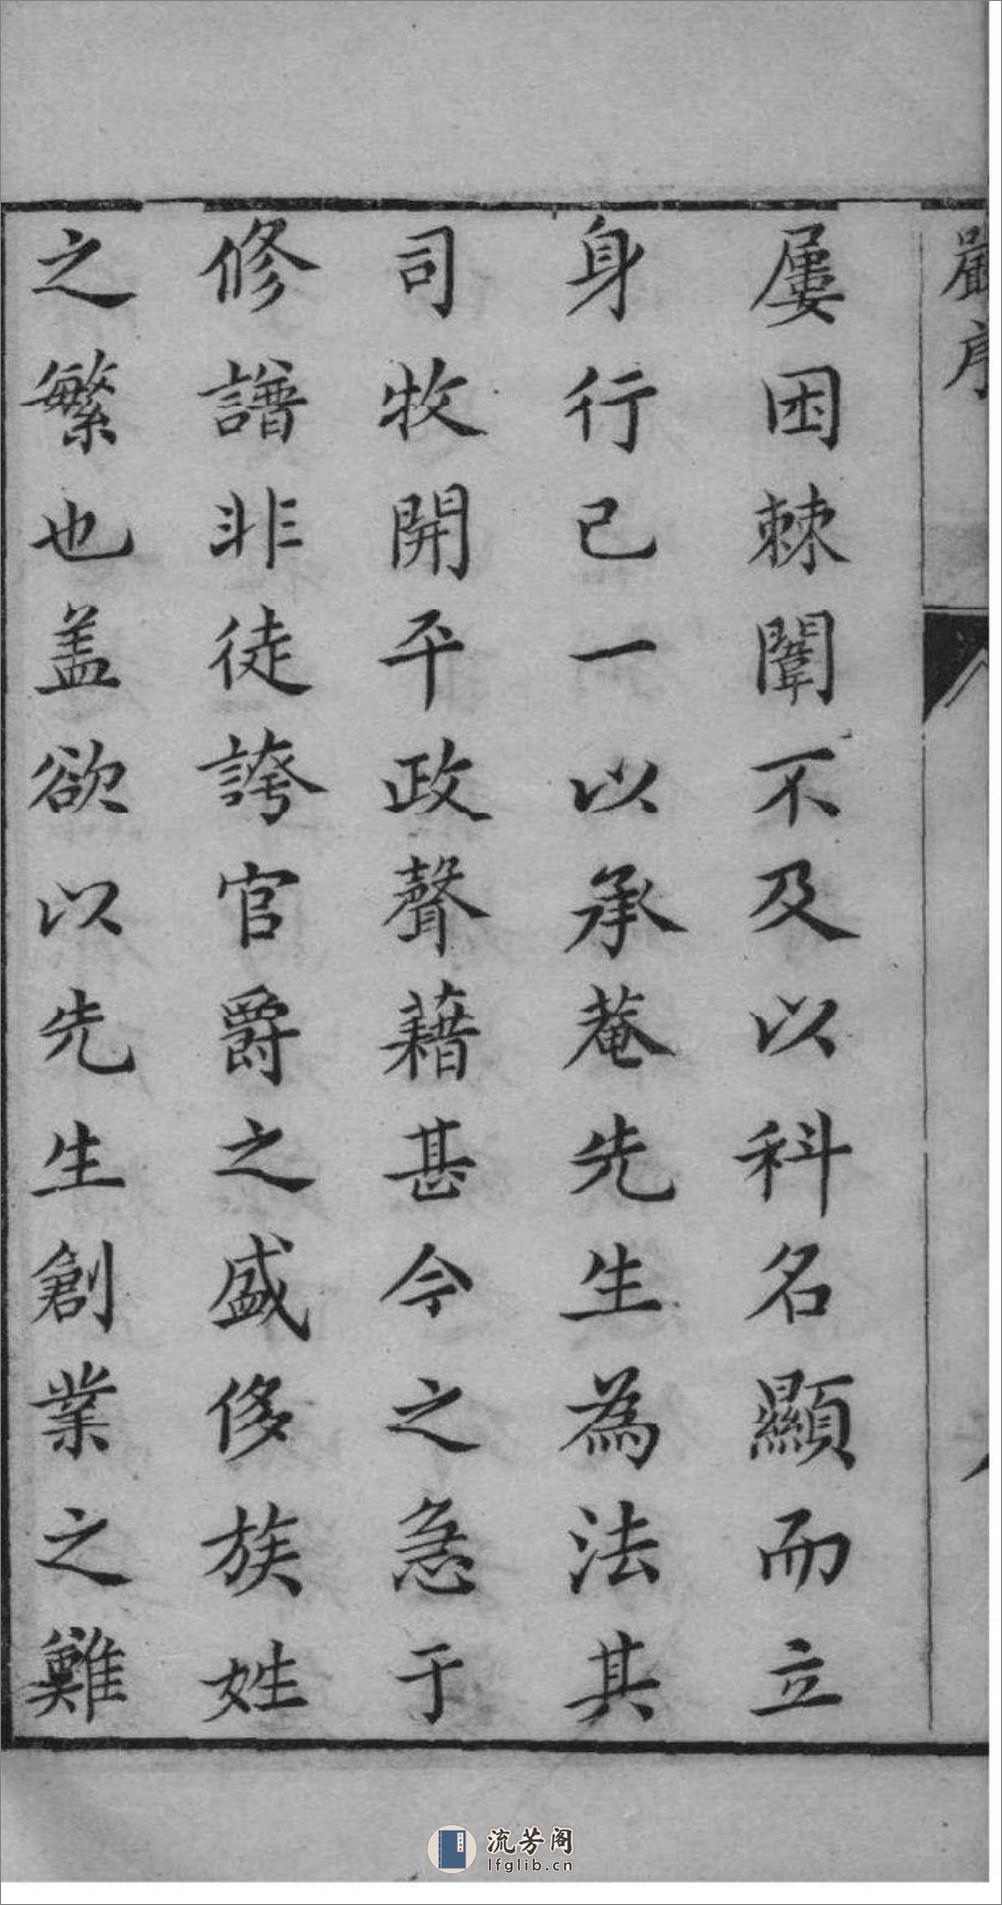 嚴序
屢困棘闈不及以科名顯而立
身行己一以承菴先生為法其
司牧開平政聲藉甚今之急于
修譜非徒誇官爵之盛侈族姓
之繁也盖欲以先生創業之難
流芳阁
lfglib.cn